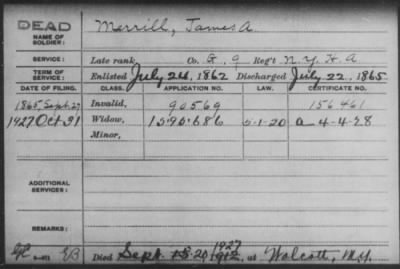 DEAD
NAME OF SOLDIER: Merrill, James A.
SERVICE: Late rank, Co. G, 9 Reg't N.Y. H. A.
TERM OF SERVICE: Enlisted July 24, 1862 Discharged July 22, 1865
DATE OF FILING. CLASS. APPLICATION NO. LAW. CERTIFICATE NO.
1865 Sept. 27 Invalid, 90569 156461
1927 Oct 31 Widow, 1590686 5-1-20 a 4-4-28
Minor,
ADDITIONAL SERVICES:
REMARKS:
1927
Died Sept. 20 1912, at Wolcott, N.Y.